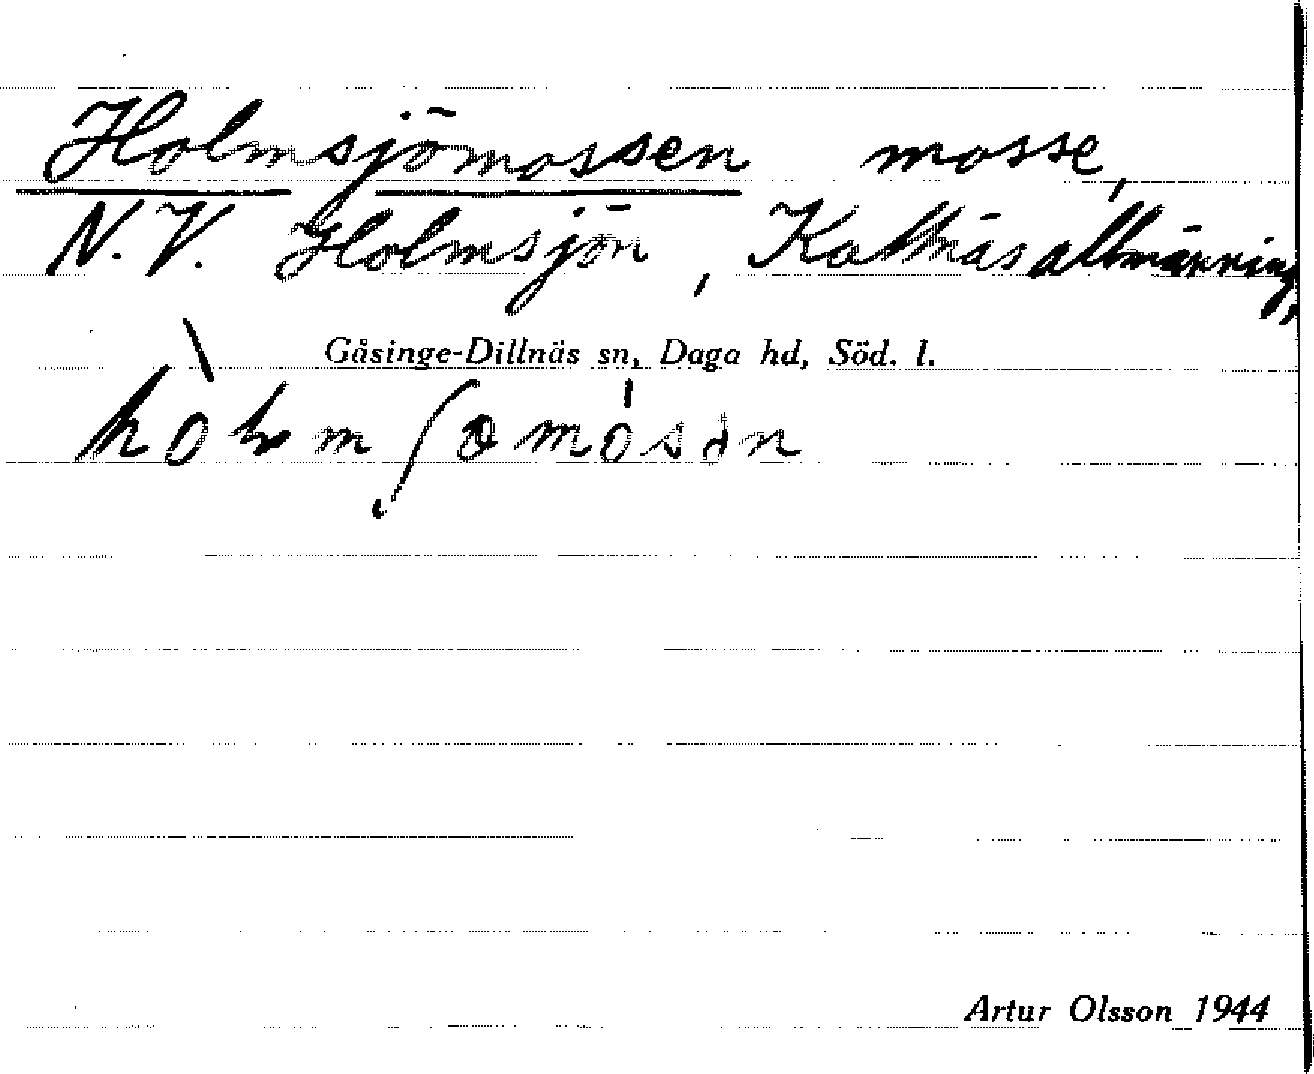 Holmsjömossen mosse,
N.V. Holmsjön, Kattnäs allmänning,
Gåsinge-Dillnäs sn, Daga hd, Söd. l.
Artur Olsson 1944